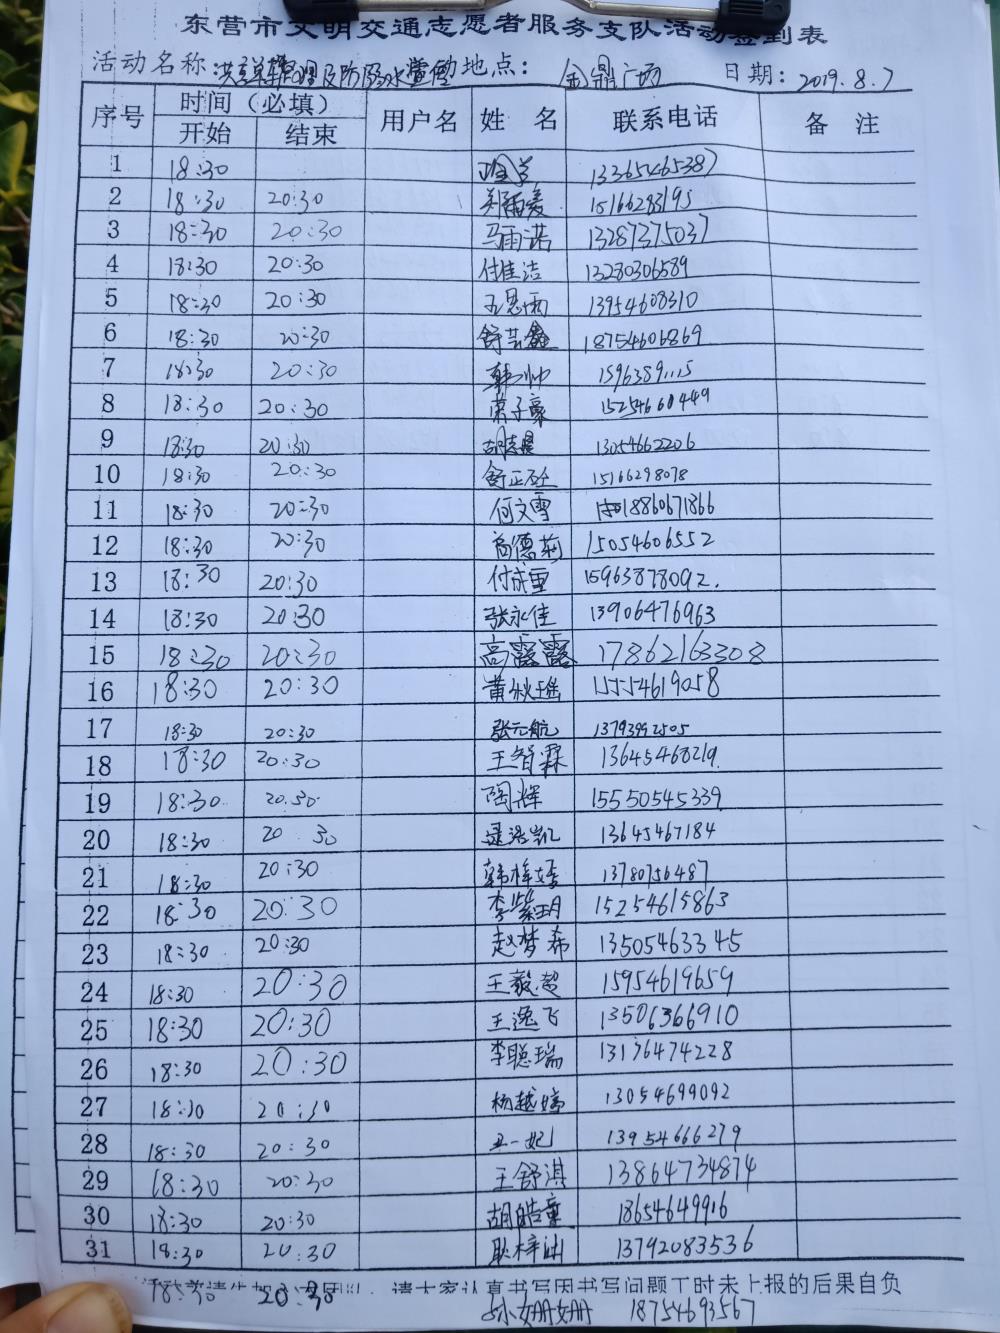 东营市文明交通志愿者服务支队活动签到表
活动名称: 及防溺水宣传 活动地点: 金鼎广场 日期: 2019.8.7
序号 时间（必填） 用户名 姓名 联系电话 备注
开始 结束
1 18:30 13365465387
2 18:30 20:30 15166283195
3 18:30 20:30 马雨诺 13287375037
4 18:30 20:30 付佳洁 13280306589
5 18:30 20:30 王思雨 13954608310
6 18:30 20:30 舒芸鑫 18754606869
7 18:30 20:30 韩帅
8 18:30 20:30 子豪 15254660449
9 18:30 20:30 胡志晨 13054662206
10 18:30 20:30 舒正丞 15166298078
11 18:30 20:30 何文雪 18860671866
12 18:30 20:30 高德莉 15054606552
13 18:30 20:30 付成重 15963878092.
14 18:30 20:30 张永佳 13906476963
15 18:30 20:30 高露露 17862163308
16 18:30 20:30 黄秋瑶 15554619058
17 18:30 20:30 张元航 13793992505
18 18:30 20:30 王智霖 13645468219.
19 18:30 20:30 陶辉 15550545339
20 18:30 20 30 逯浩凯 13645467184
21 18:30 20:30 韩梓婷 13780756487
22 18:30 20:30 李紫玥 15254615863
23 18:30 20:30 赵梦希 13505463345
24 18:30 20:30 王毅超 15954619659
25 18:30 20:30 王逸飞 13506366910
26 18:30 20:30 李聪瑞 13176474228
27 18:30 20:30 杨越婷 13054699092
28 18:30 20:30 王一妃 13954666279
29 18:30 20:30 王舒淇 13864734874
30 18:30 20:30 胡皓童 18654649916
31 18:30 20:30 耿梓涵 13792083536
请大家认真书写因书写问题工时未上报的后果自负
18:30 20:30 孙姗姗 18754693567